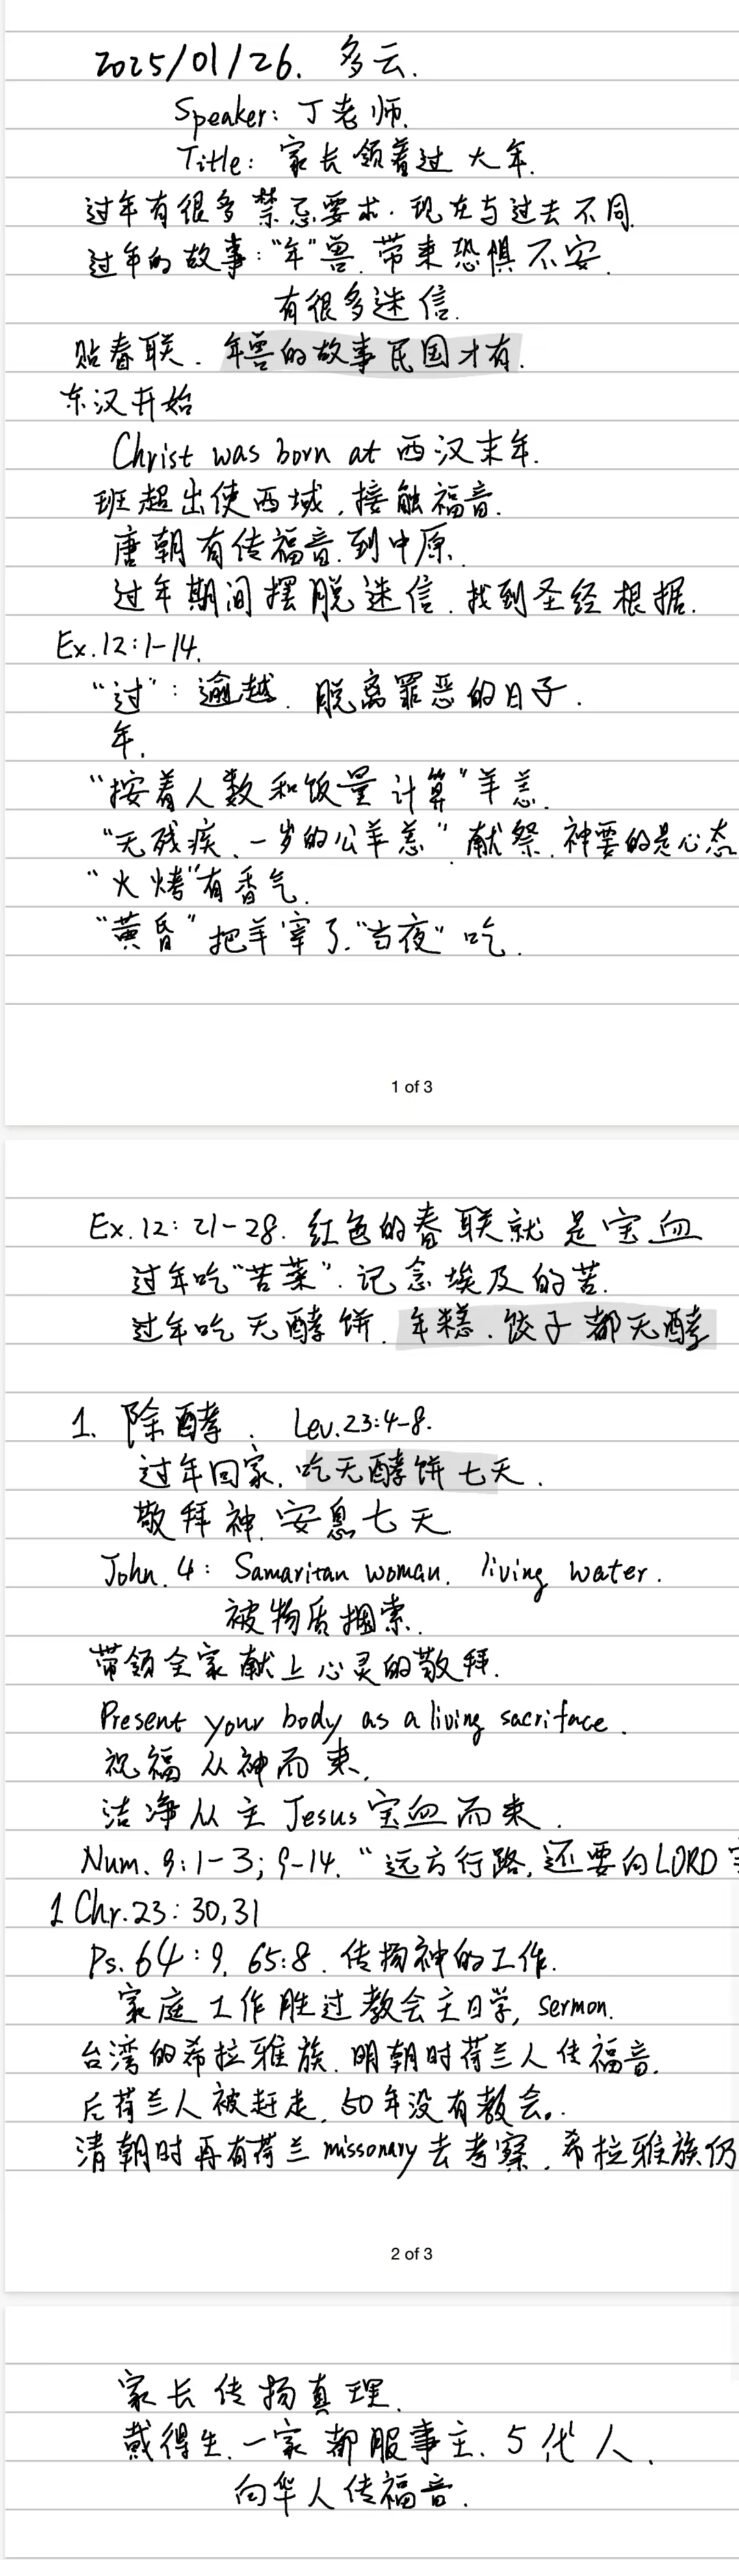 2025/01/26. 多云.
Speaker: 丁老师.
Title: 家长领着过大年.
过年有很多禁忌要求. 现在与过去不同.
过年的故事:"年"兽. 带来恐惧不安.
有很多迷信.
贴春联. 年兽的故事民国才有.
东汉开始
Christ was born at 西汉末年.
班超出使西域, 接触福音.
唐朝有传福音. 到中原.
过年期间摆脱迷信. 找到圣经根据.
Ex. 12:1-14.
"过": 逾越. 脱离罪恶的日子.
年.
"按着人数和饭量计算"羊羔.
"无残疾、一岁的公羊羔" 献祭. 神要的是心态
"火烤"有香气.
"黄昏"把羊宰了."当夜"吃.
1 of 3
Ex. 12: 21-28. 红色的春联就是宝血
过年吃"苦菜". 记念埃及的苦.
过年吃无酵饼. 年糕、饺子都无酵
1. 除酵. Lev. 23:4-8.
过年回家. 吃无酵饼七天.
敬拜神. 安息七天
John. 4: Samaritan woman. living water.
被物质捆索.
带领全家献上心灵的敬拜.
Present your body as a living sacriface.
祝福从神而来.
洁净从主 Jesus 宝血而来.
Num. 9:1-3; 9-14. "远方行路, 还要向 LORD
1 Chr. 23: 30, 31
Ps. 64: 9. 65:8. 传扬神的工作.
家庭工作胜过教会主日学, sermon.
台湾的希拉雅族. 明朝时荷兰人传福音.
后荷兰人被赶走. 50年没有教会。
清朝时再有荷兰 missonary 去考察. 希拉雅族仍
2 of 3
家长传扬真理.
戴得生. 一家都服事主. 5代人.
向华人传福音.